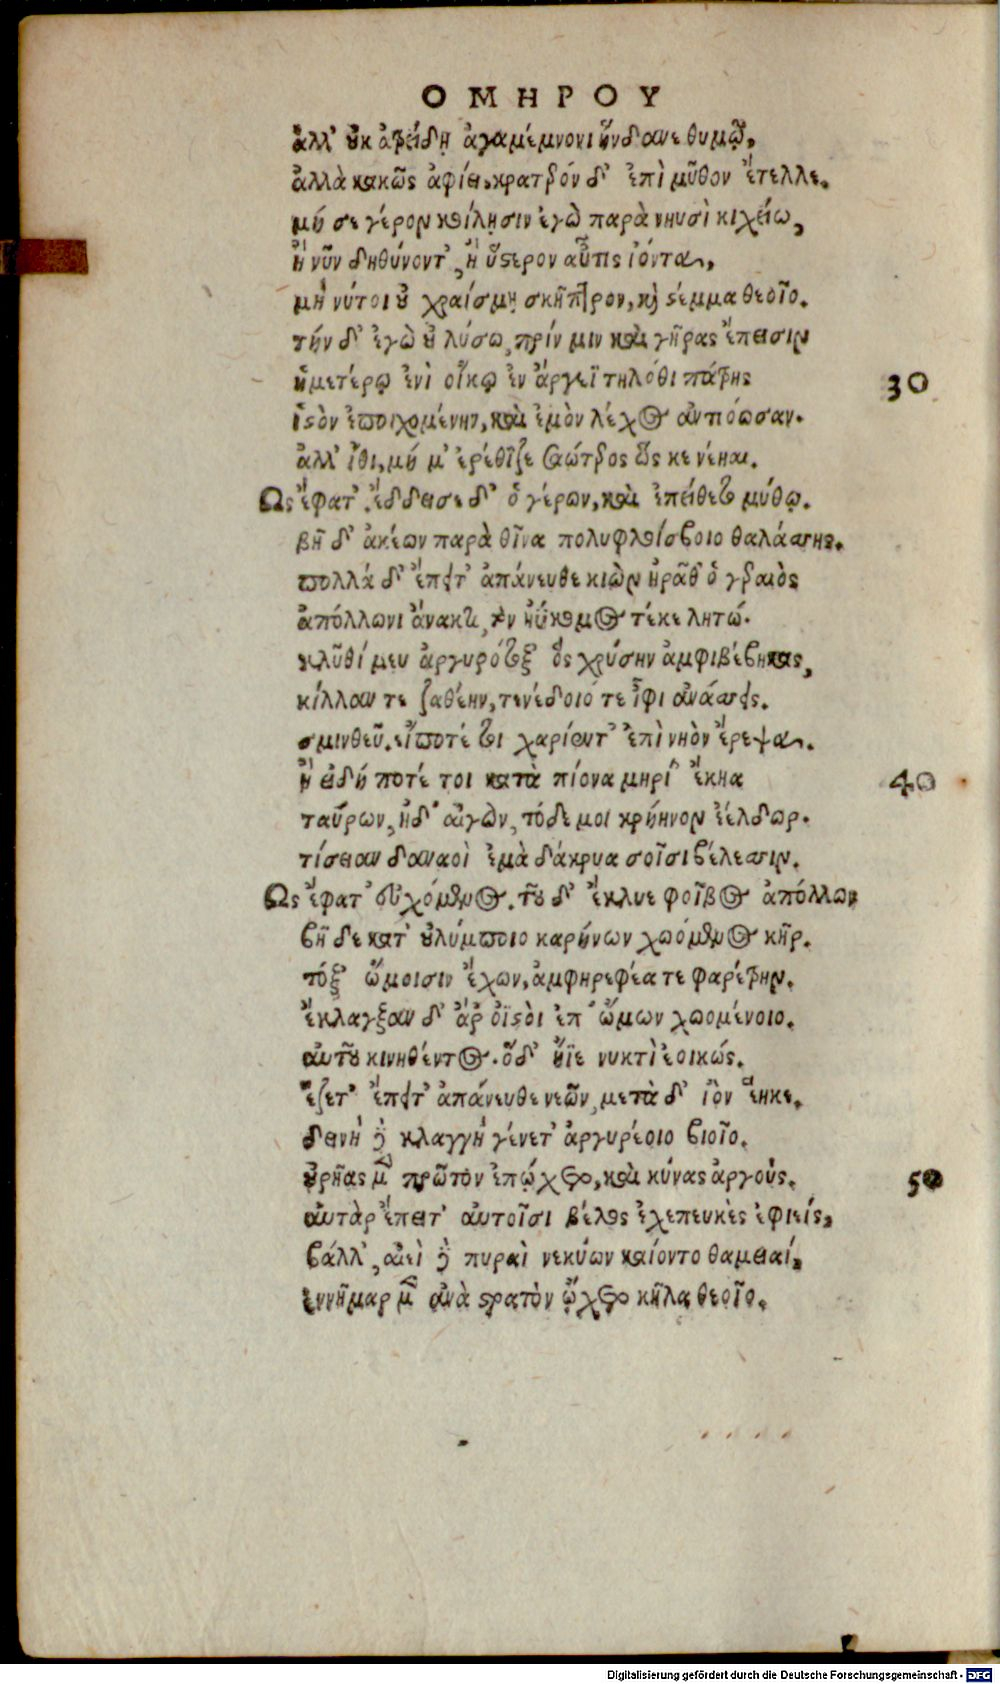 ΟΜΗΡΟΥ
ἀλλ' οὐκ ἀτρείδῃ ἀγαμέμνονι ἥνδανε θυμῷ,
ἀλλὰ κακῶς ἀφίει, κρατερόν δ' ἐπὶ μῦθον ἔτελλε.
μή σε γέρον κοίλῃσιν ἐγὼ παρὰ νηυσὶ κιχείω,
ἢ νῦν δηθύνοντ', ἢ ὕστερον αὖτις ἰόντα,
μή νύ τοι οὐ χραίσμῃ σκῆπτρον, καὶ στέμμα θεοῖο.
τήν δ' ἐγὼ οὐ λύσω, πρίν μιν καὶ γῆρας ἔπεισιν
ἡμετέρῳ ἐνὶ οἴκῳ ἐν ἄργεϊ τηλόθι πάτρης
30
ἱστὸν ἐποιχομένην, καὶ ἐμὸν λέχος ἀντιόωσαν.
ἀλλ' ἴθι, μή μ' ἐρέθιζε σαώτερος ὥς κε νέηαι.
Ὣς ἔφατ'. ἔδδεισε δ' ὁ γέρων, καὶ ἐπείθετο μύθῳ.
βῆ δ' ἀκέων παρὰ θῖνα πολυφλοίσβοιο θαλάσσης.
πολλά δ' ἔπειτ' ἀπάνευθε κιὼν ἠρᾶθ' ὁ γεραιὸς
ἀπόλλωνι ἄνακτι, τὸν ἠΰκομος τέκε λητώ.
κλῦθί μευ ἀργυρότοξ' ὃς χρύσην ἀμφιβέβηκας,
κίλλαν τε ζαθέην, τενέδοιό τε ἶφι ἀνάσσεις.
σμινθεῦ. εἴποτέ τοι χαρίεντ' ἐπὶ νηὸν ἔρεψα.
ἢ εἰ δή ποτέ τοι κατὰ πίονα μηρί' ἔκηα
40
ταύρων, ἠδ' αἰγῶν, τόδε μοι κρήηνον ἐέλδωρ.
τίσειαν δαναοὶ ἐμὰ δάκρυα σοῖσι βέλεσσιν.
Ὣς ἔφατ' εὐχόμενος. τοῦ δ' ἔκλυε φοῖβος ἀπόλλων
βῆ δε κατ' οὐλύμποιο καρήνων χωόμενος κῆρ.
τόξ' ὤμοισιν ἔχων, ἀμφηρεφέα τε φαρέτρην.
ἔκλαγξαν δ' ἄρ' ὀϊστοὶ ἐπ' ὤμων χωομένοιο.
αὐτοῦ κινηθέντος. ὅδ' ἤϊε νυκτὶ ἐοικώς.
ἕζετ' ἔπειτ' ἀπάνευθε νεῶν, μετὰ δ' ἰὸν ἕηκε.
δεινὴ δὲ κλαγγὴ γένετ' ἀργυρέοιο βιοῖο.
οὐρῆας μὲν πρῶτον ἐπῴχετο, καὶ κύνας ἀργούς.
50
αὐτὰρ ἔπειτ' αὐτοῖσι βέλος ἐχεπευκὲς ἐφιείς,
βάλλ', αἰεὶ δὲ πυραὶ νεκύων καίοντο θαμειαί.
ἐννῆμαρ μὲν ἀνὰ στρατὸν ᾤχετο κῆλα θεοῖο.
Digitalisierung gefördert durch die Deutsche Forschungsgemeinschaft - DFG